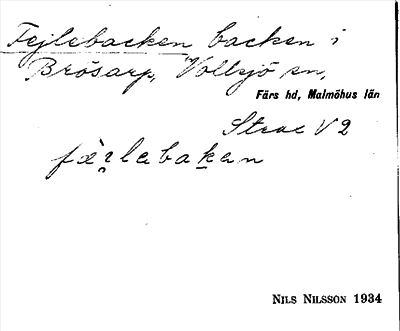 Fejlebacken backen i
Brösarp, Vollsjö sn,
Färs hd, Malmöhus län
Strax V 2
NILS NILSSON 1934